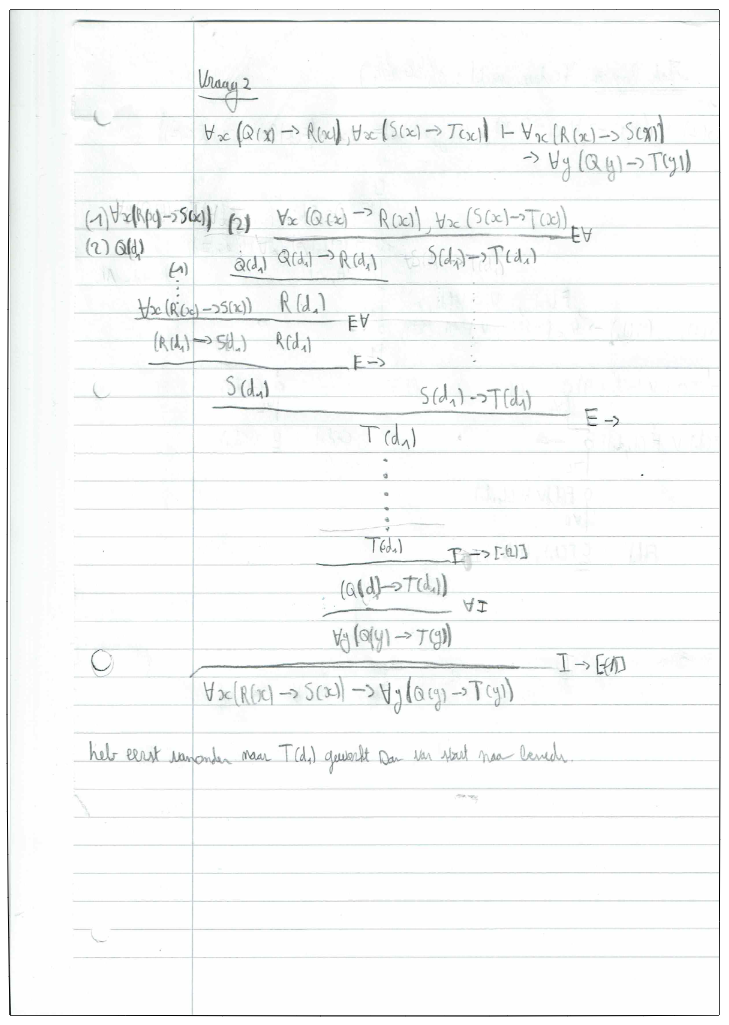 Vraag 2
∀x(Q(x) → R(x)), ∀x(S(x) → T(x)) ⊢ ∀x(R(x) → S(x))
→ ∀y(Q(y) → T(y))
(1) ∀x(R(x) → S(x)) (2) ∀x(Q(x) → R(x)), ∀x(S(x) → T(x))
E∀
(2) Q(d₁)
Q(d₁) Q(d₁) → R(d₁) S(d₁) → T(d₁)
(1)
∀x(R(x) → S(x)) R(d₁)
E∀
(R(d₁) → S(d₁) R(d₁)
E →
S(d₁) S(d₁) → T(d₁)
E →
T(d₁)
T(d₁)
I → [-(2)]
(Q(d₁) → T(d₁))
∀I
∀y(Q(y) → T(y))
I → [-(1)]
∀x(R(x) → S(x)) → ∀y(Q(y) → T(y))
heb eerst vanonder naar T(d₁) gewerkt Dan van start naar beneden.